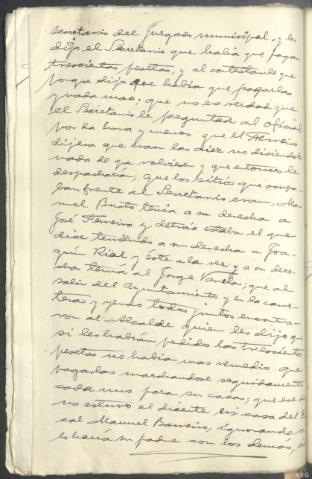 secretario del Juzgado municipal, y les
dijo el Secretario que había que pagar
trescientas pesetas, y al contestarle que
porque dijo que había que pagarlas
y nada mas; que no es verdad que
el Secretario le preguntase al oficial
por la hora y menos que el
dijera que eran las diez no diciendo
nada de que volviese y que entonces le
despacharía; que los sitios que ocupa-
ban frente al Secretario eran, Ma-
nuel Busto tenía a su derecha a
José Ferreiro y detrás estaba el que
dice teniendo a su derecha a Joa-
quín Rial y este a la vez y a su dere-
cha tenía al Jorge Varela; que al
salir del Ayuntamiento y en la carre-
tera y yendo todos juntos encontra-
ron al Alcalde quien les dijo que
si les habían pedido las trescientas
pesetas no había mas remedio que
pagarlas marchandose seguidamente
cada uno para su casa; que ese dia
no estuvo el dicente en casa del
cal Manuel Barreiro, ignorando si
lo haría su padre con los demás,